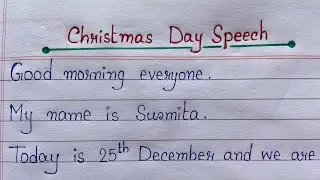 Christmas Day Speech
Good morning everyone.
My name is Susmita.
Today is 25th December and we are